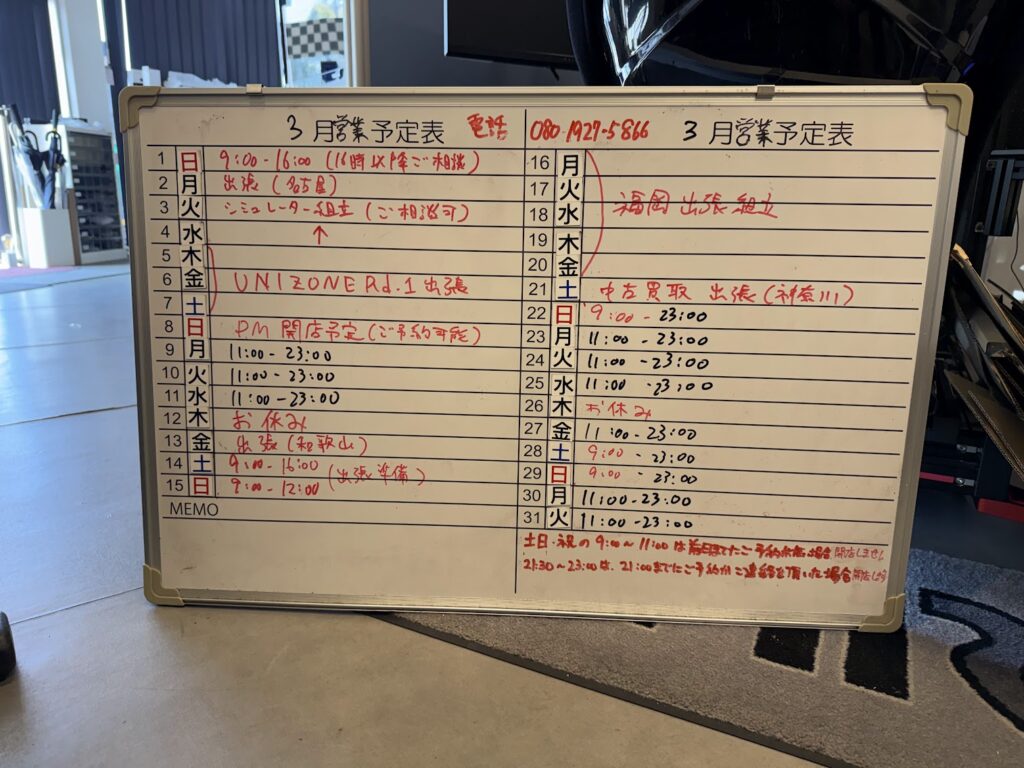 3月営業予定表 電話 080-1927-5866 3月営業予定表
1 日 9:00-16:00 (16時以降ご相談)
2 月 出張 (名古屋)
3 火 シミュレーター組立 (ご相談可)
4 水 ↑
5 木
6 金 UNIZONE Rd.1 出張
7 土
8 日 PM 開店予定 (ご予約可能)
9 月 11:00-23:00
10 火 11:00-23:00
11 水 11:00-23:00
12 木 お休み
13 金 出張 (和歌山)
14 土 9:00-16:00 (出張準備)
15 日 9:00-12:00
MEMO
16 月
17 火 福岡出張組立
18 水
19 木
20 金
21 土 中古買取 出張 (神奈川)
22 日 9:00-23:00
23 月 11:00-23:00
24 火 11:00-23:00
25 水 11:00-23:00
26 木 お休み
27 金 11:00-23:00
28 土 9:00-23:00
29 日 9:00-23:00
30 月 11:00-23:00
31 火 11:00-23:00
土日・祝の9:00~11:00は前日までにご予約 場合 開店しません
21:30~23:00は、21:00までにご予約かご連絡を頂いた場合 開店します